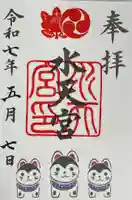 奉拝
水天宮
令和七年五月七日